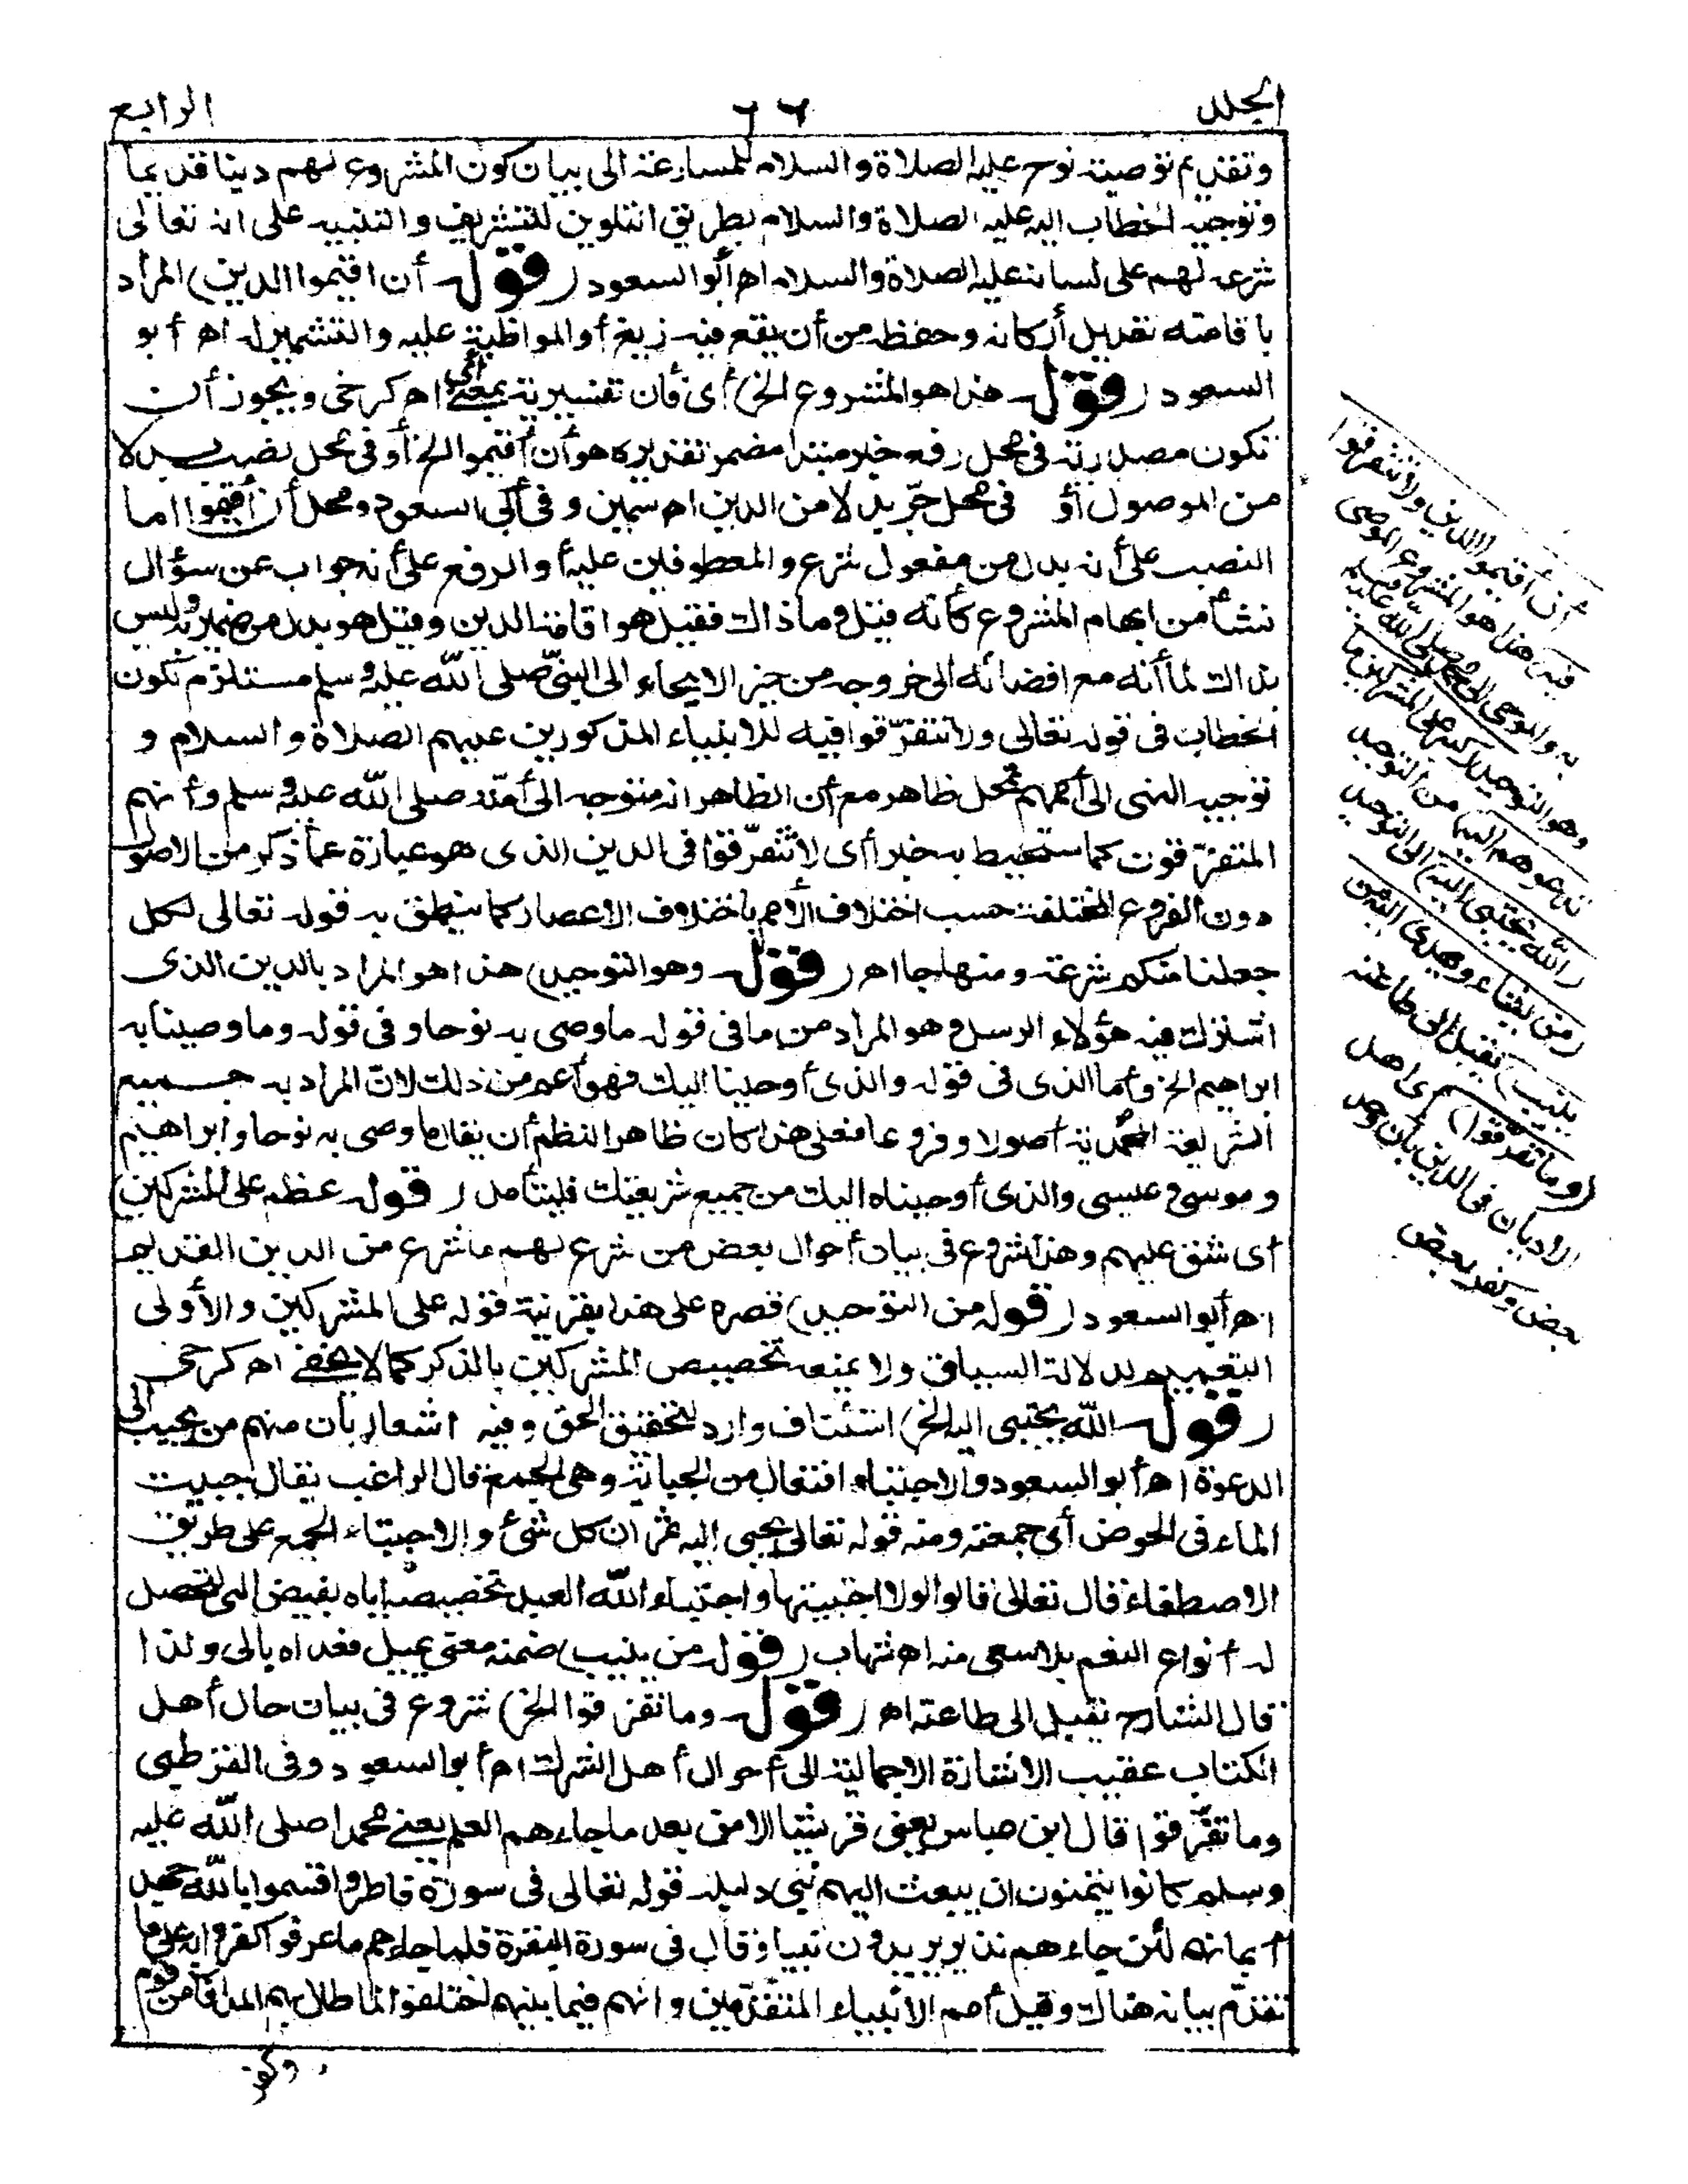 الجلد ٦٦ الرابع
وتقديم توصية نوح عليه الصلاة والسلام للمسارعة الى بيان كون المشروع لهم دينا قديما
وتوجيه الخطاب اليه عليه الصلاة والسلام بطريق التلوين للتشريف والتنبيه على انه تعالى
شرعه لهم على لسانه عليه الصلاة والسلام اه أبو السعود (قوله أن اقيموا الدين) المراد
باقامته تعديل أركانه وحفظه من أن يقع فيه زيغ أو المواظبة عليه والتشمير له اه أبو
السعود (قوله هذا هو المشروع الخ) أى فأن تفسيرية بمعنى أى اه كرخى ويجوز أن
تكون مصدرية فى محل رفع خبر مبتدا مضمر تقديره هو أن أقيموا الخ أو فى محل نصب بدلا
من الموصول أو فى محل جرّ بدلا من الدين اه سمين وفى أبى السعود ومحل أن أقيموا اما
النصب على أنه بدل من مفعول شرع والمعطوفين عليه أو الرفع على أنه جواب عن سؤال
نشأ من ابهام المشروع كأنه قيل وما ذاك فقيل هو اقامة الدين وقيل هو بدل من ضمير به وليس
بذاك لما أنه مع افضائه الى خروجه من حيز الايحاء الى النبىّ صلى الله عليه وسلم مستلزم لكون
الخطاب فى قوله تعالى ولا تتفرّقوا فيه للانبياء المذكورين عليهم الصلاة والسلام و
توجيه النهى الى أممهم تمحل ظاهر مع أن الظاهر انه متوجه الى أمّته صلى الله عليه وسلم وأنهم
المتفرّقون كما ستحيط به خبرا أى لا تتفرّقوا فى الدين الذى هو عبارة عما ذكر من الاصول
دون الفروع المختلفة حسب اختلاف الأمم باختلاف الاعصار كما ينطق به قوله تعالى لكل
جعلنا منكم شرعة ومنهاجا اه (قوله وهو التوحيد) هذا هو المراد بالدين الذى
اشترك فيه هؤلاء الرسل وهو المراد من ما فى قوله ما وصى به نوحا وفى قوله وما وصينا به
ابراهيم الخ وأما الذى فى قوله والذى أوحينا اليك فهو أعم من ذلك لانّ المراد به جميع
الشريعة المحمدية أصولا وفروعا فعلى هذا كان ظاهر النظم أن يقال ما وصى به نوحا وابراهيم
وموسى وعيسى والذى أوحيناه اليك من جميع شريعتك فليتأمل (قوله عظم على المشركين)
أى شق عليهم وهذا شروع فى بيان أحوال بعض من شرع لهم ما شرع من الدين القديم
اه أبو السعود (قوله من التوحيد) قصره على هذا بقرينة قوله على المشركين والأولى
التعميم لدلالة السياق ولا يمنعه تخصيص المشركين بالذكر كما لا يخفى اه كرخى
(قوله الله يجتبى اليه الخ) استئناف وارد لتحقيق الحق وفيه اشعار بأن منهم من يجيب الى
الدعوة اه أبو السعود والاجتباء افتعال من الجباية وهى الجمع قال الراغب يقال جبيت
الماء فى الحوض أى جمعته ومنه قوله تعالى يجبى اليه ثمرات كل شئ والاجتباء الجمع على طريق
الاصطفاء قال تعالى قالوا لولا اجتبيتها واجتباء الله العبد تخصيصه اياه بفيض الهى لتحصل
له أنواع النعم بلا سعى منه اه شهاب (قوله من ينيب) ضمنه معنى يميل فعداه بالى ولذا
قال الشارح يقبل الى طاعته اه (قوله وما تفرقوا الخ) شروع فى بيان حال أهل
الكتاب عقيب الاشارة الاجمالية الى أحوال أهل الشرك اه أبو السعود وفى القرطبى
وما تفرّقوا قال ابن عباس يعنى قريشا الا من بعد ما جاءهم العلم يعنى محمدا صلى الله عليه
وسلم كانوا يتمنون ان يبعث اليهم نبى دليله قوله تعالى فى سورة فاطر واقسموا بالله جهد
أيمانهم لئن جاءهم نذير يريدون نبيا وقال فى سورة البقرة فلما جاءهم ما عرفوا كفروا به على ما
تقدّم بيانه هناك وقيل أمم الانبياء المتقدّمين وانهم فيما بينهم اختلفوا لما طال بهم المدى فآمن قوم
وكفر
أن أقيموا الدين ولا تتفرقوا
فيه هذا هو المشروع الموصى
به والموحى الى محمد صلى الله عليه وسلم
وهو التوحيد (كبر) على المشركين ما
تدعوهم اليه) من التوحيد
(الله يجتبى اليه) الى التوحيد
(من يشاء ويهدى اليه من
ينيب) يقبل الى طاعته
(وما تفرقوا) أى اهل
الاديان فى الدين بأن وحد
بعض وكفر بعض